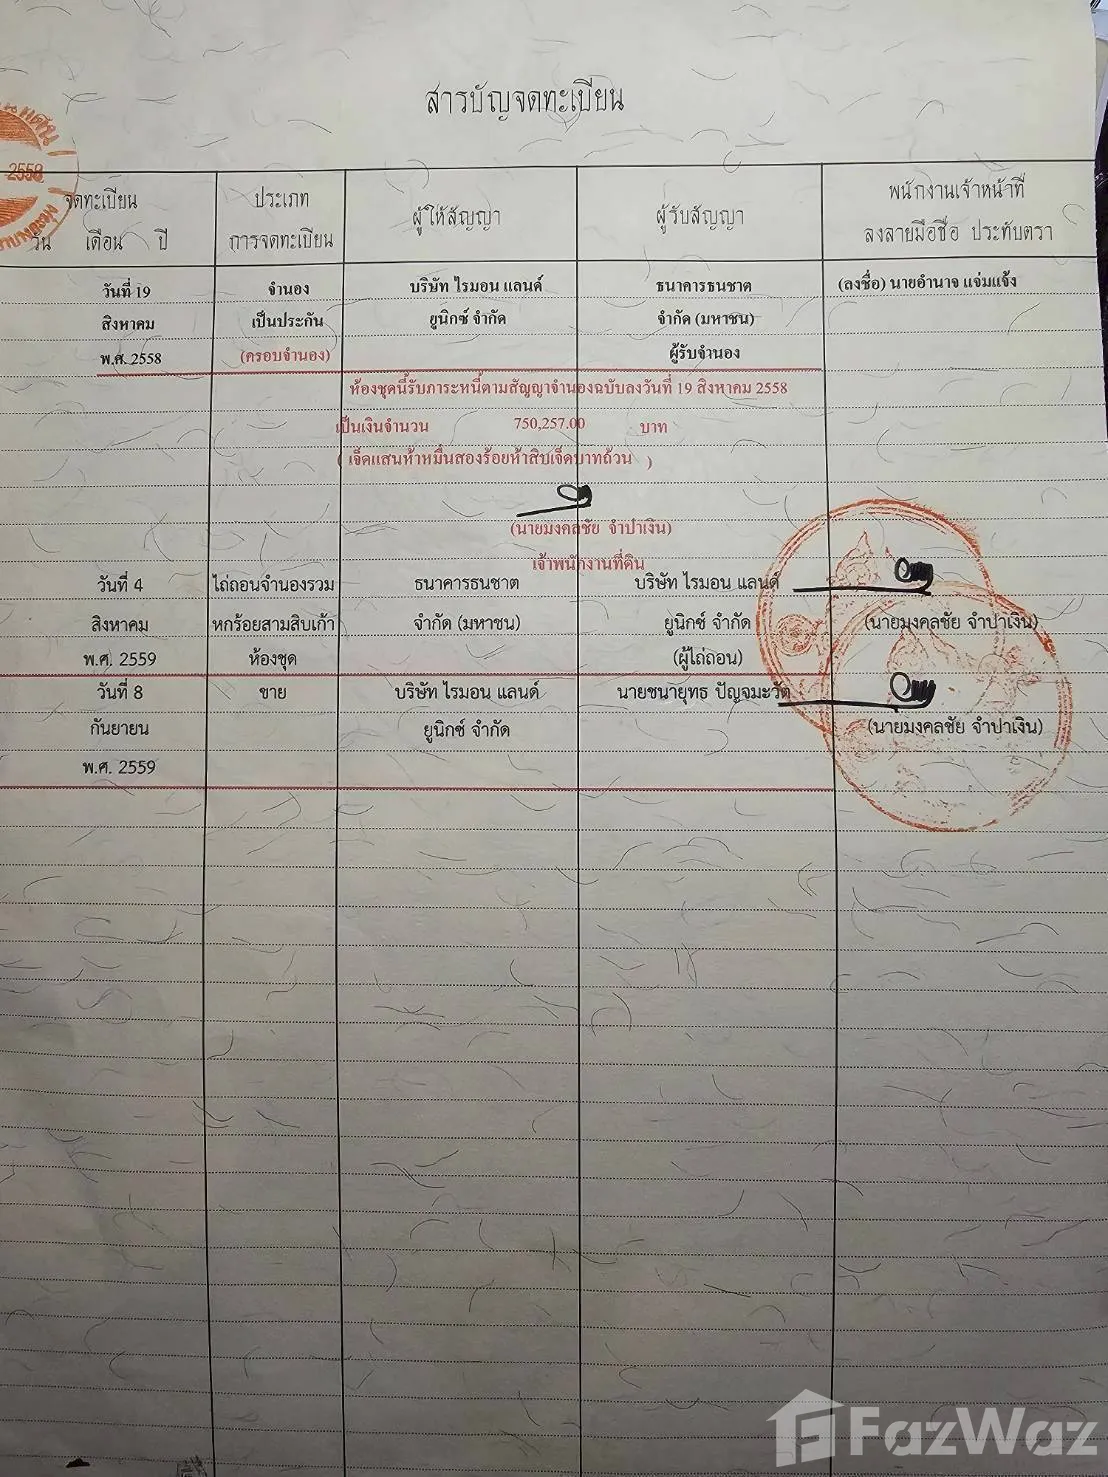 สารบัญจดทะเบียน
2558
จดทะเบียน
วัน เดือน ปี
ประเภท
การจดทะเบียน
ผู้ให้สัญญา
ผู้รับสัญญา
พนักงานเจ้าหน้าที่
ลงลายมือชื่อ ประทับตรา
วันที่ 19 จำนอง บริษัท ไรมอน แลนด์ ธนาคารธนชาต (ลงชื่อ) นายอำนาจ แจ่มแจ้ง
สิงหาคม เป็นประกัน ยูนิกซ์ จำกัด จำกัด (มหาชน)
พ.ศ. 2558 (ครอบจำนอง) ผู้รับจำนอง
ห้องชุดนี้รับภาระหนี้ตามสัญญาจำนองฉบับลงวันที่ 19 สิงหาคม 2558
เป็นเงินจำนวน 750,257.00 บาท
( เจ็ดแสนห้าหมื่นสองร้อยห้าสิบเจ็ดบาทถ้วน )
(นายมงคลชัย จำปาเงิน)
เจ้าพนักงานที่ดิน
วันที่ 4 ไถ่ถอนจำนองรวม ธนาคารธนชาต บริษัท ไรมอน แลนด์
สิงหาคม หกร้อยสามสิบเก้า จำกัด (มหาชน) ยูนิกซ์ จำกัด (นายมงคลชัย จำปาเงิน)
พ.ศ. 2559 ห้องชุด (ผู้ไถ่ถอน)
วันที่ 8 ขาย บริษัท ไรมอน แลนด์ นายชนายุทธ ปัญจมะวัต
กันยายน ยูนิกซ์ จำกัด (นายมงคลชัย จำปาเงิน)
พ.ศ. 2559
FazWaz